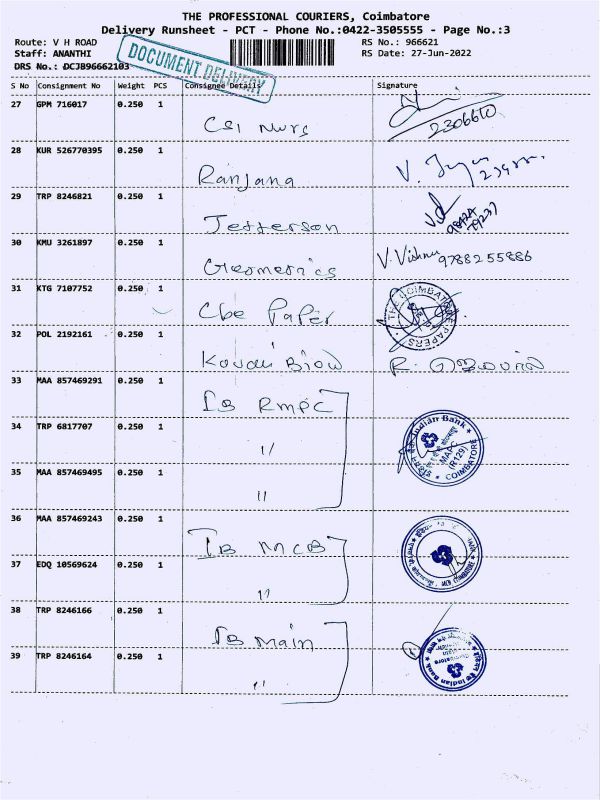 THE PROFESSIONAL COURIERS, Coimbatore
Delivery Runsheet - PCT - Phone No.:0422-3505555 - Page No.:3
Route: V H ROAD
RS No.: 966621
Staff: ANANTHI
RS Date: 27-Jun-2022
DRS No.: DCJB96662103
DOCUMENT DELIVERY
S No Consignment No Weight PCS Consignee Details Signature
27 GPM 716017 0.250 1
CSI Nurs
2306610
28 KUR 526770395 0.250 1
Ranjana
29 TRP 8246821 0.250 1
Jefferson
30 KMU 3261897 0.250 1
Geometrics V. Vishnu 9788255886
31 KTG 7107752 0.250 1
Cbe Paper THE COIMBATORE PAPERS
32 POL 2192161 0.250 1
Kovai Biow
33 MAA 857469291 0.250 1
IB RMPC
34 TRP 6817707 0.250 1
Indian Bank
MAPC
(R129)
COIMBATORE
"
35 MAA 857469495 0.250 1
"
36 MAA 857469243 0.250 1
IB MCB
37 EDQ 10569624 0.250 1
"
38 TRP 8246166 0.250 1
IB Main
39 TRP 8246164 0.250 1
"
Indian Bank